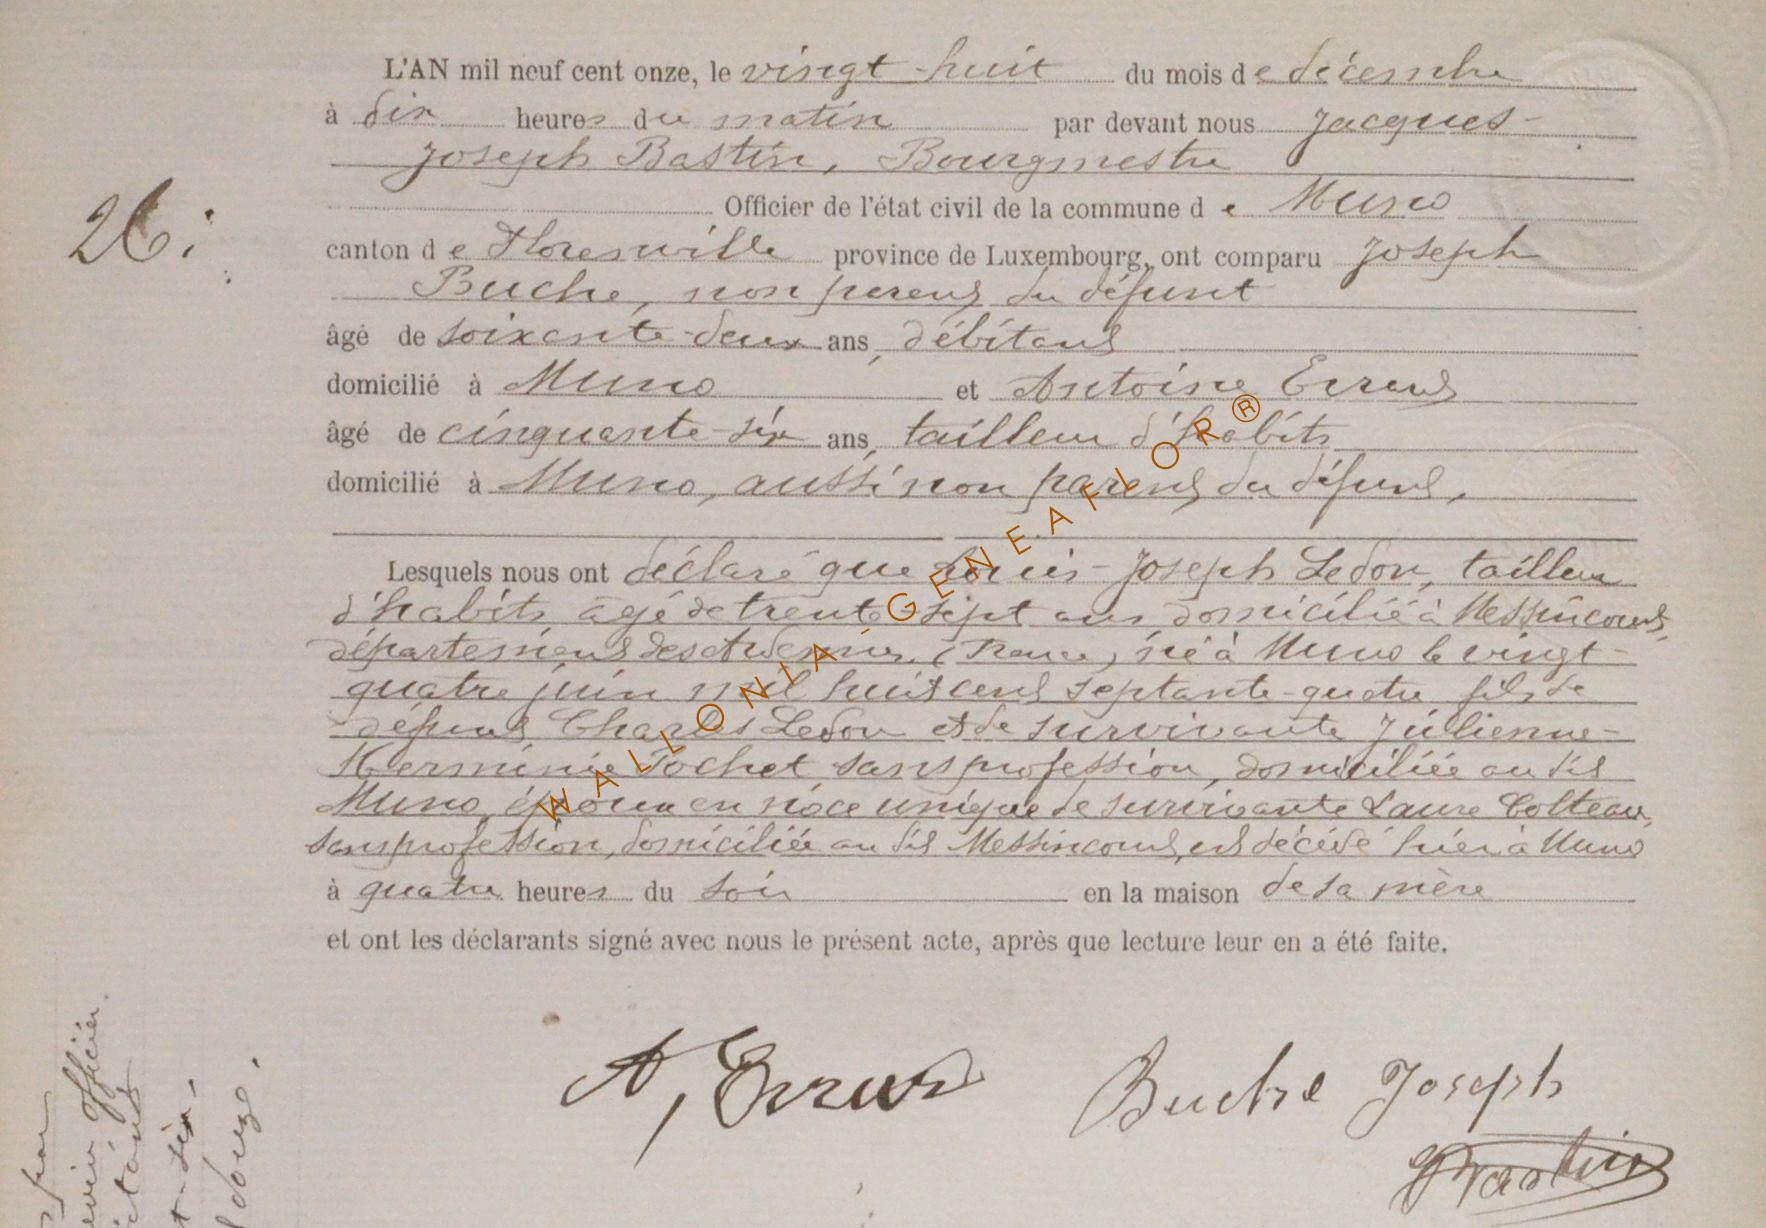 L'AN mil neuf cent onze, le vingt-huit du mois de décembre
à dix heures du matin par devant nous Jacques-
Joseph Bastin, Bourgmestre
Officier de l'état civil de la commune de Muno
26.
canton de Florenville province de Luxembourg, ont comparu Joseph
Buche, non parent du défunt
âgé de soixante-deux ans, débitant
domicilié à Muno et Antoine
âgé de cinquante-six ans, tailleur d'habits
domicilié à Muno, aussi non parent du défunt,
Lesquels nous ont déclaré que Louis-Joseph Ledou, tailleur
d'habits âgé de trente-sept ans domicilié à Messincourt,
département des Ardennes (France) né à Muno le vingt-
quatre juin mil huit cent septante-quatre fils de
défunt Charles Ledou et de survivante Julienne-
Herminie Pochet sans profession, domiciliée au dit
Muno, époux en noce unique de survivante Laure Colteau,
sans profession, domiciliée au dit Messincourt, est décédé hier à Muno
à quatre heures du soir en la maison de sa mère
et ont les déclarants signé avec nous le présent acte, après que lecture leur en a été faite.
A,
Buche Joseph
JBastin
par
officier
-six-
douze.
WALLONIA-GENEAFLOR®